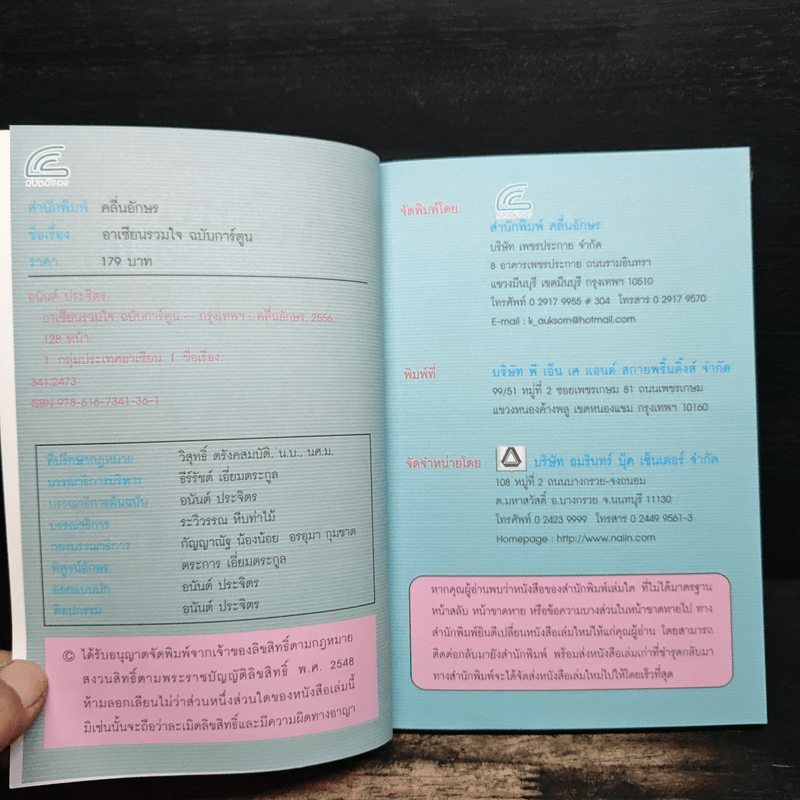 สำนักพิมพ์ คลื่นอักษร
ชื่อเรื่อง อาเซียนรวมใจ ฉบับการ์ตูน
ราคา 179 บาท
อนันต์ ประจิตร.
อาเซียนรวมใจ ฉบับการ์ตูน.-- กรุงเทพฯ : คลื่นอักษร, 2556.
128 หน้า.
1. กลุ่มประเทศอาเซียน. I. ชื่อเรื่อง.
341.2473
ISBN 978-616-7341-36-1
ที่ปรึกษากฎหมาย วิสุทธิ์ ตรังคสมบัติ, น.บ., นศ.ม.
บรรณาธิการบริหาร ธีร์รัชต์ เอี่ยมตระกูล
บรรณาธิการต้นฉบับ อนันต์ ประจิตร
บรรณาธิการ ระวิวรรณ หีบท่าไม้
กองบรรณาธิการ กัญญาณัฐ น้องน้อย อรอุมา กุมชาด
พิสูจน์อักษร ตระการ เอี่ยมตระกูล
ออกแบบปก อนันต์ ประจิตร
ศิลปกรรม อนันต์ ประจิตร
© ได้รับอนุญาตจัดพิมพ์จากเจ้าของลิขสิทธิ์ตามกฎหมาย
สงวนสิทธิ์ตามพระราชบัญญัติลิขสิทธิ์ พ.ศ. 2548
ห้ามลอกเลียนไม่ว่าส่วนหนึ่งส่วนใดของหนังสือเล่มนี้
มิเช่นนั้นจะถือว่าละเมิดลิขสิทธิ์และมีความผิดทางอาญา
จัดพิมพ์โดย
สำนักพิมพ์ คลื่นอักษร
บริษัท เพชรประกาย จำกัด
8 อาคารเพชรประกาย ถนนรามอินทรา
แขวงมีนบุรี เขตมีนบุรี กรุงเทพฯ 10510
โทรศัพท์ 0 2917 9955 # 304 โทรสาร 0 2917 9570
E-mail : k_auksorn@hotmail.com
พิมพ์ที่ บริษัท พี เอ็น เค แอนด์ สกายพริ้นติ้งส์ จำกัด
99/51 หมู่ที่ 2 ซอยเพชรเกษม 81 ถนนเพชรเกษม
แขวงหนองค้างพลู เขตหนองแขม กรุงเทพฯ 10160
จัดจำหน่ายโดย บริษัท อมรินทร์ บุ๊ค เซ็นเตอร์ จำกัด
108 หมู่ที่ 2 ถนนบางกรวย-จงถนอม
ต.มหาสวัสดิ์ อ.บางกรวย จ.นนทบุรี 11130
โทรศัพท์ 0 2423 9999 โทรสาร 0 2449 9561-3
Homepage : http://www.naiin.com
หากคุณผู้อ่านพบว่าหนังสือของสำนักพิมพ์เล่มใด ที่ไม่ได้มาตรฐาน
หน้าสลับ หน้าขาดหาย หรือข้อความบางส่วนในหน้าขาดหายไป ทาง
สำนักพิมพ์ยินดีเปลี่ยนหนังสือเล่มใหม่ให้แก่คุณผู้อ่าน โดยสามารถ
ติดต่อกลับมายังสำนักพิมพ์ พร้อมส่งหนังสือเล่มเก่าที่ชำรุดกลับมา
ทางสำนักพิมพ์จะได้จัดส่งหนังสือเล่มใหม่ไปให้โดยเร็วที่สุด